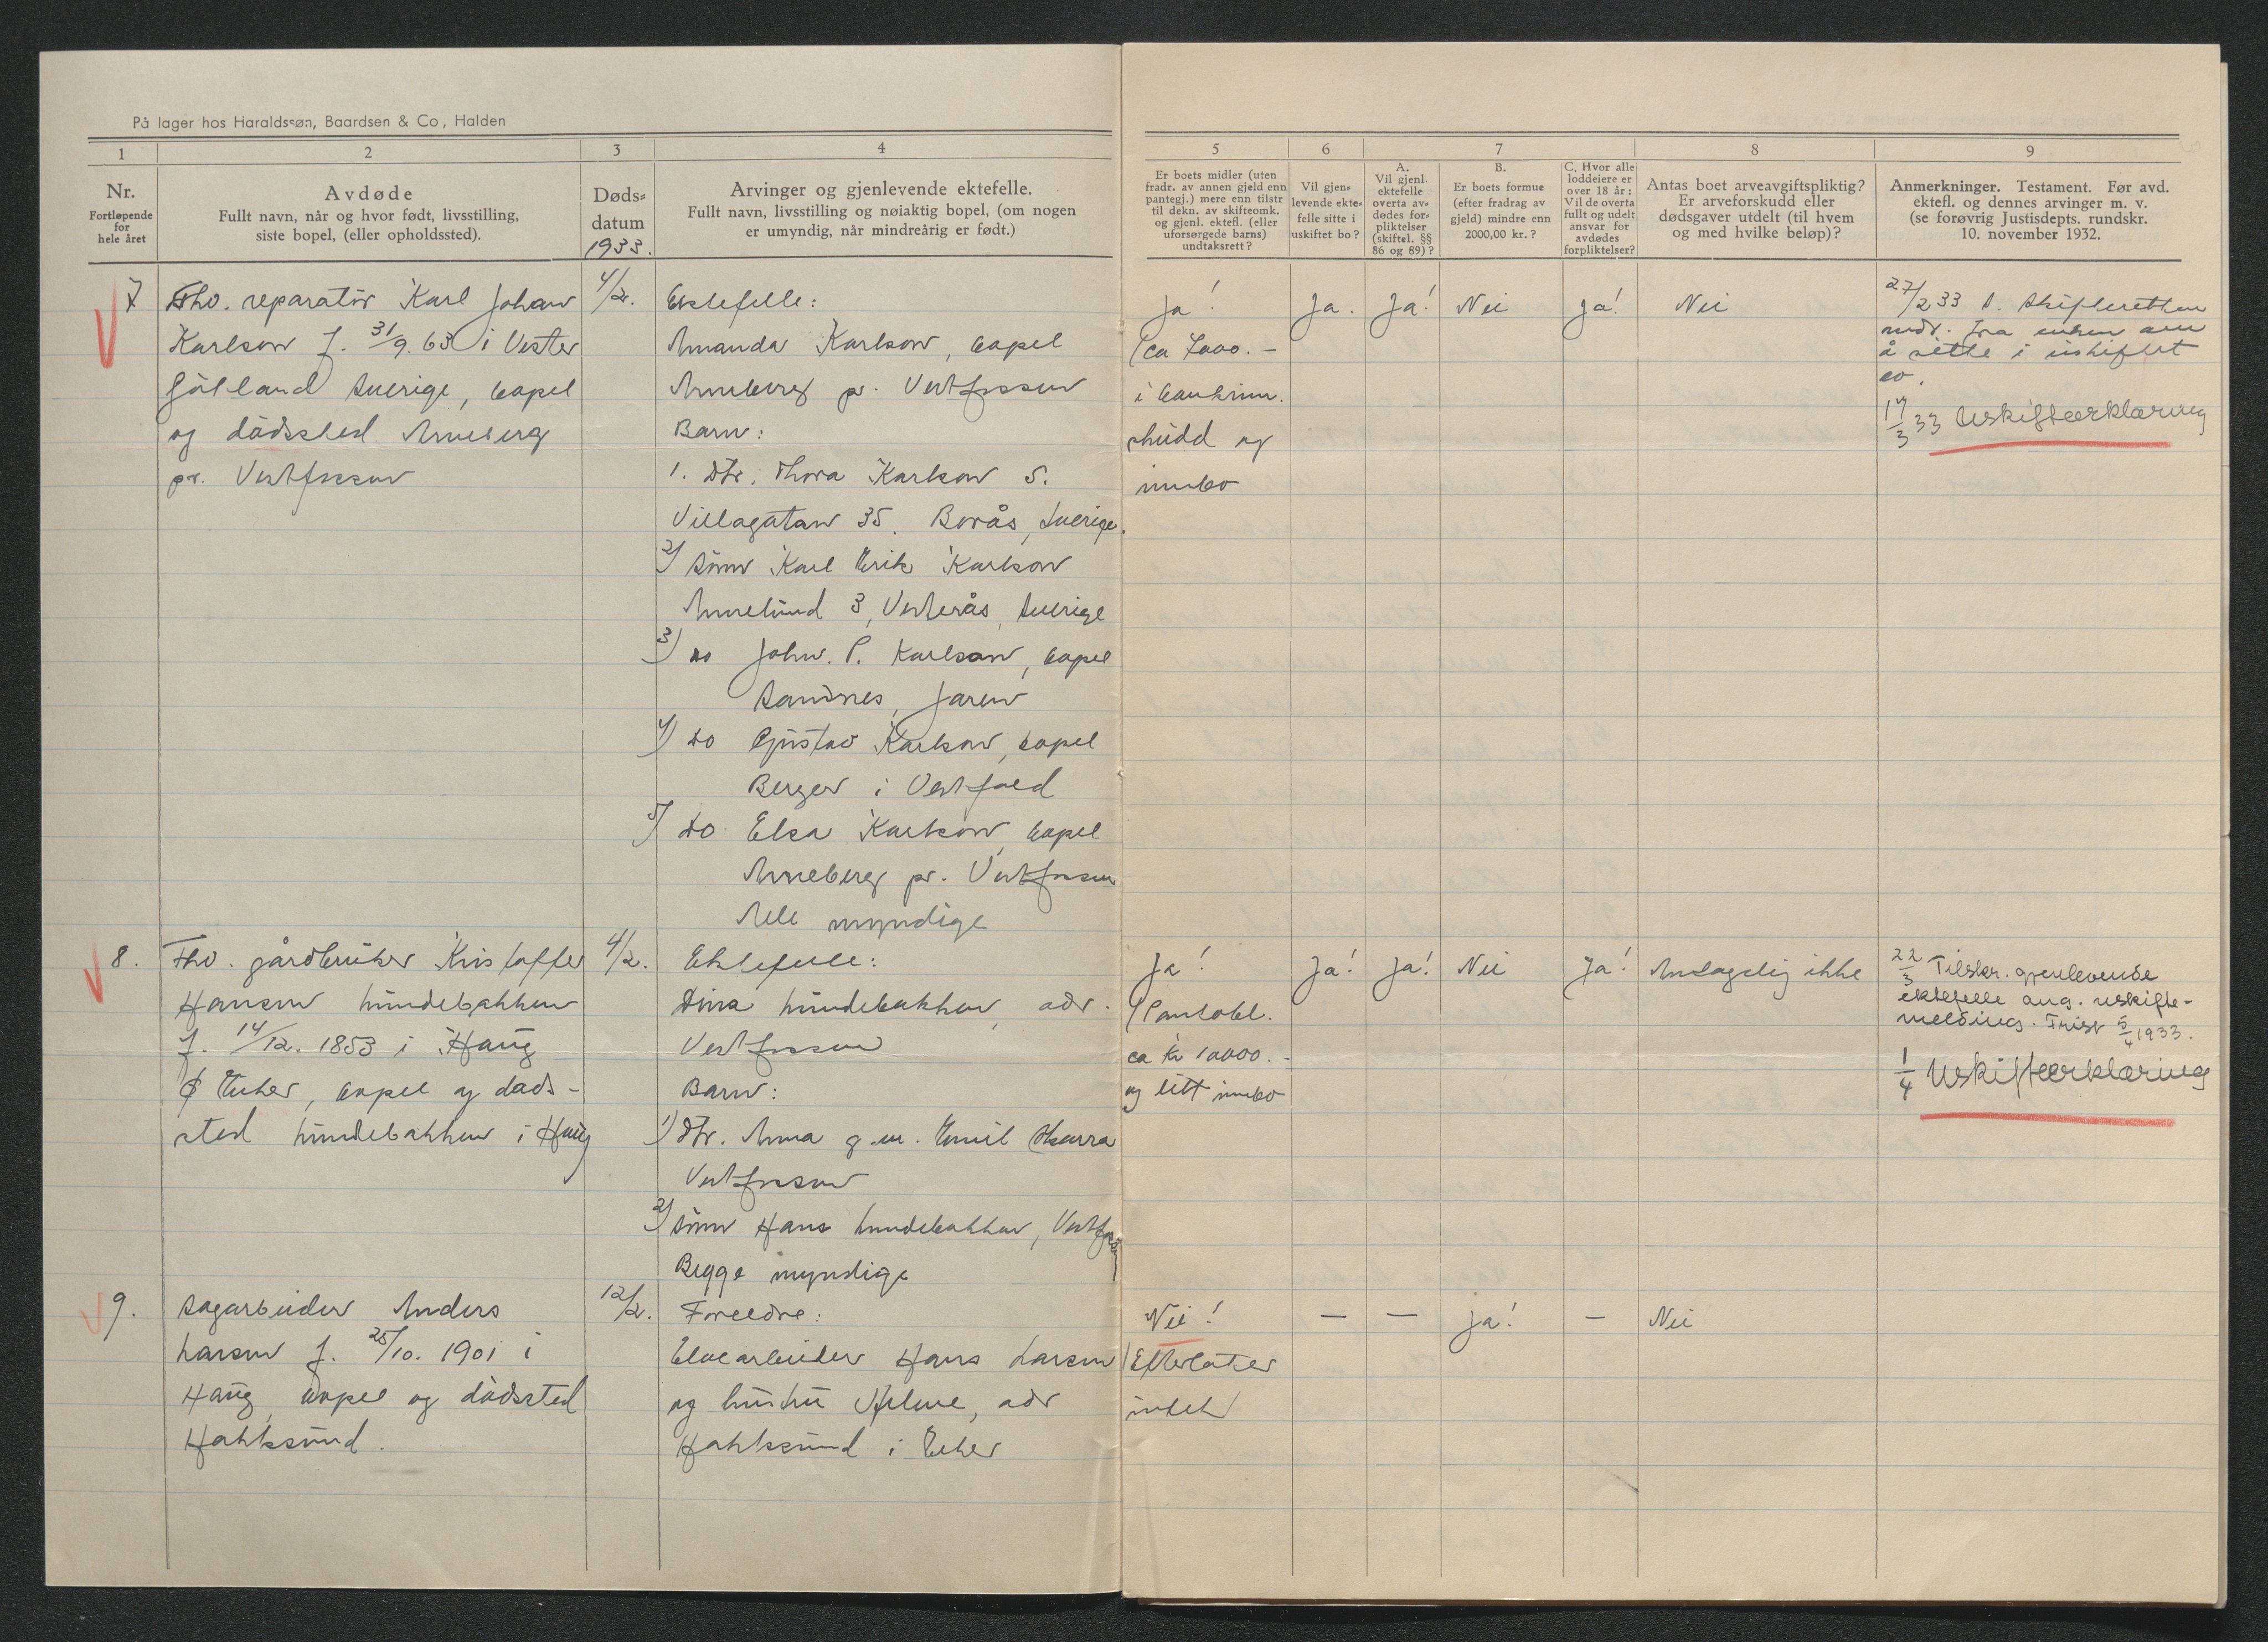 På lager hos Haraldssøn, Baardsen & Co, Halden
1 2 3 4 5 6 7 8 9
Nr.
Fortløpende
for
hele året
Avdøde
Fullt navn, når og hvor født, livsstilling,
siste bopel, (eller opholdssted).
Døds-
datum
1933.
Arvinger og gjenlevende ektefelle.
Fullt navn, livsstilling og nøiaktig bopel, (om nogen
er umyndig, når mindreårig er født.)
Er boets midler (uten
fradr. av annen gjeld enn
pantegj.) mere enn tilstr
til dekn. av skifteomk.
og gjenl. ektefl. (eller
uforsørgede barns)
undtaksrett?
Vil gjen-
levende ekte-
felle sitte i
uskiftet bo?
A.
Vil gjenl.
ektefelle
overta av-
dødes for-
pliktelser
(skiftel. §§
86 og 89)?
B.
Er boets formue
(efter fradrag av
gjeld) mindre enn
2000,00 kr.?
C. Hvor alle
loddeiere er
over 18 år:
Vil de overta
fullt og udelt
ansvar for
avdødes
forpliktelser?
Antas boet arveavgiftspliktig?
Er arveforskudd eller
dødsgaver utdelt (til hvem
og med hvilke beløp)?
Anmerkninger. Testament. Før avd.
ektefl. og dennes arvinger m. v.
(se forøvrig Justisdepts. rundskr.
10. november 1932.
7
Fhv. reparatör Karl Johan
Karlson f. 31/9. 63 i Vester
Götland Sverige, bopel
og dödssted Anneberg
pr. Vestfossen
4/2.
Ektefelle:
Amanda Karlson, bopel
Anneberg pr. Vestfossen
Barn:
1. Dtr. Thora Karlson S.
Villagatan 35. Borås, Sverige.
2) Sönn Karl Erik Karlson
Annelund 3, Vesterås, Sverige
3) do John. P. Karlson, bopel
Sandnes, Jaren
4) do Gustav Karlson, bopel
Berger i Vestfold
5) do Elsa Karlson, bopel
Anneberg pr. Vestfossen
Alle myndige
Ja!
(ca 7000.-
i bankinn.
skudd og
innbo
Ja.
Ja!
Nei
Ja!
Nei
27/2 33 S. Skifteretten
medd. fra enken om
å sitte i uskiftet
bo.
17/3 33 Uskifteerklæring
8.
Fhv. gårdbruker Kristoffer
Hansen Lundebakken
f. 14/12. 1853 i Haug
Ø Eiker, bopel og döds-
sted Lundebakken i Haug
4/2.
Ektefelle:
Dina Lundebakken, adr.
Vestfossen
Barn:
1) Dtr. Anna g.m. Emil Skarra
Vestfossen
2) Sönn Hans Lundebakken, Vestfossen
Begge myndige
Ja!
(Pantobl.
ca kr 10000.-
og litt innbo
Ja!
Ja!
Nei
Ja!
Antagelig ikke
22/3 Tilskr. gjenlevende
ektefelle ang. uskifte-
melding. Frist 5/4 1933.
1/4 Uskifteerklæring
9.
Sagarbeider Anders
Larsen f. 25/10. 1901 i
Haug, bopel og dödssted
Hokksund.
12/2.
Foreldre:
Elvearbeider Hans Larsen
og hustru Helene, adr
Hokksund i Eiker
Nei!
(Efterlater
intet)
—
—
Ja!
—
Nei